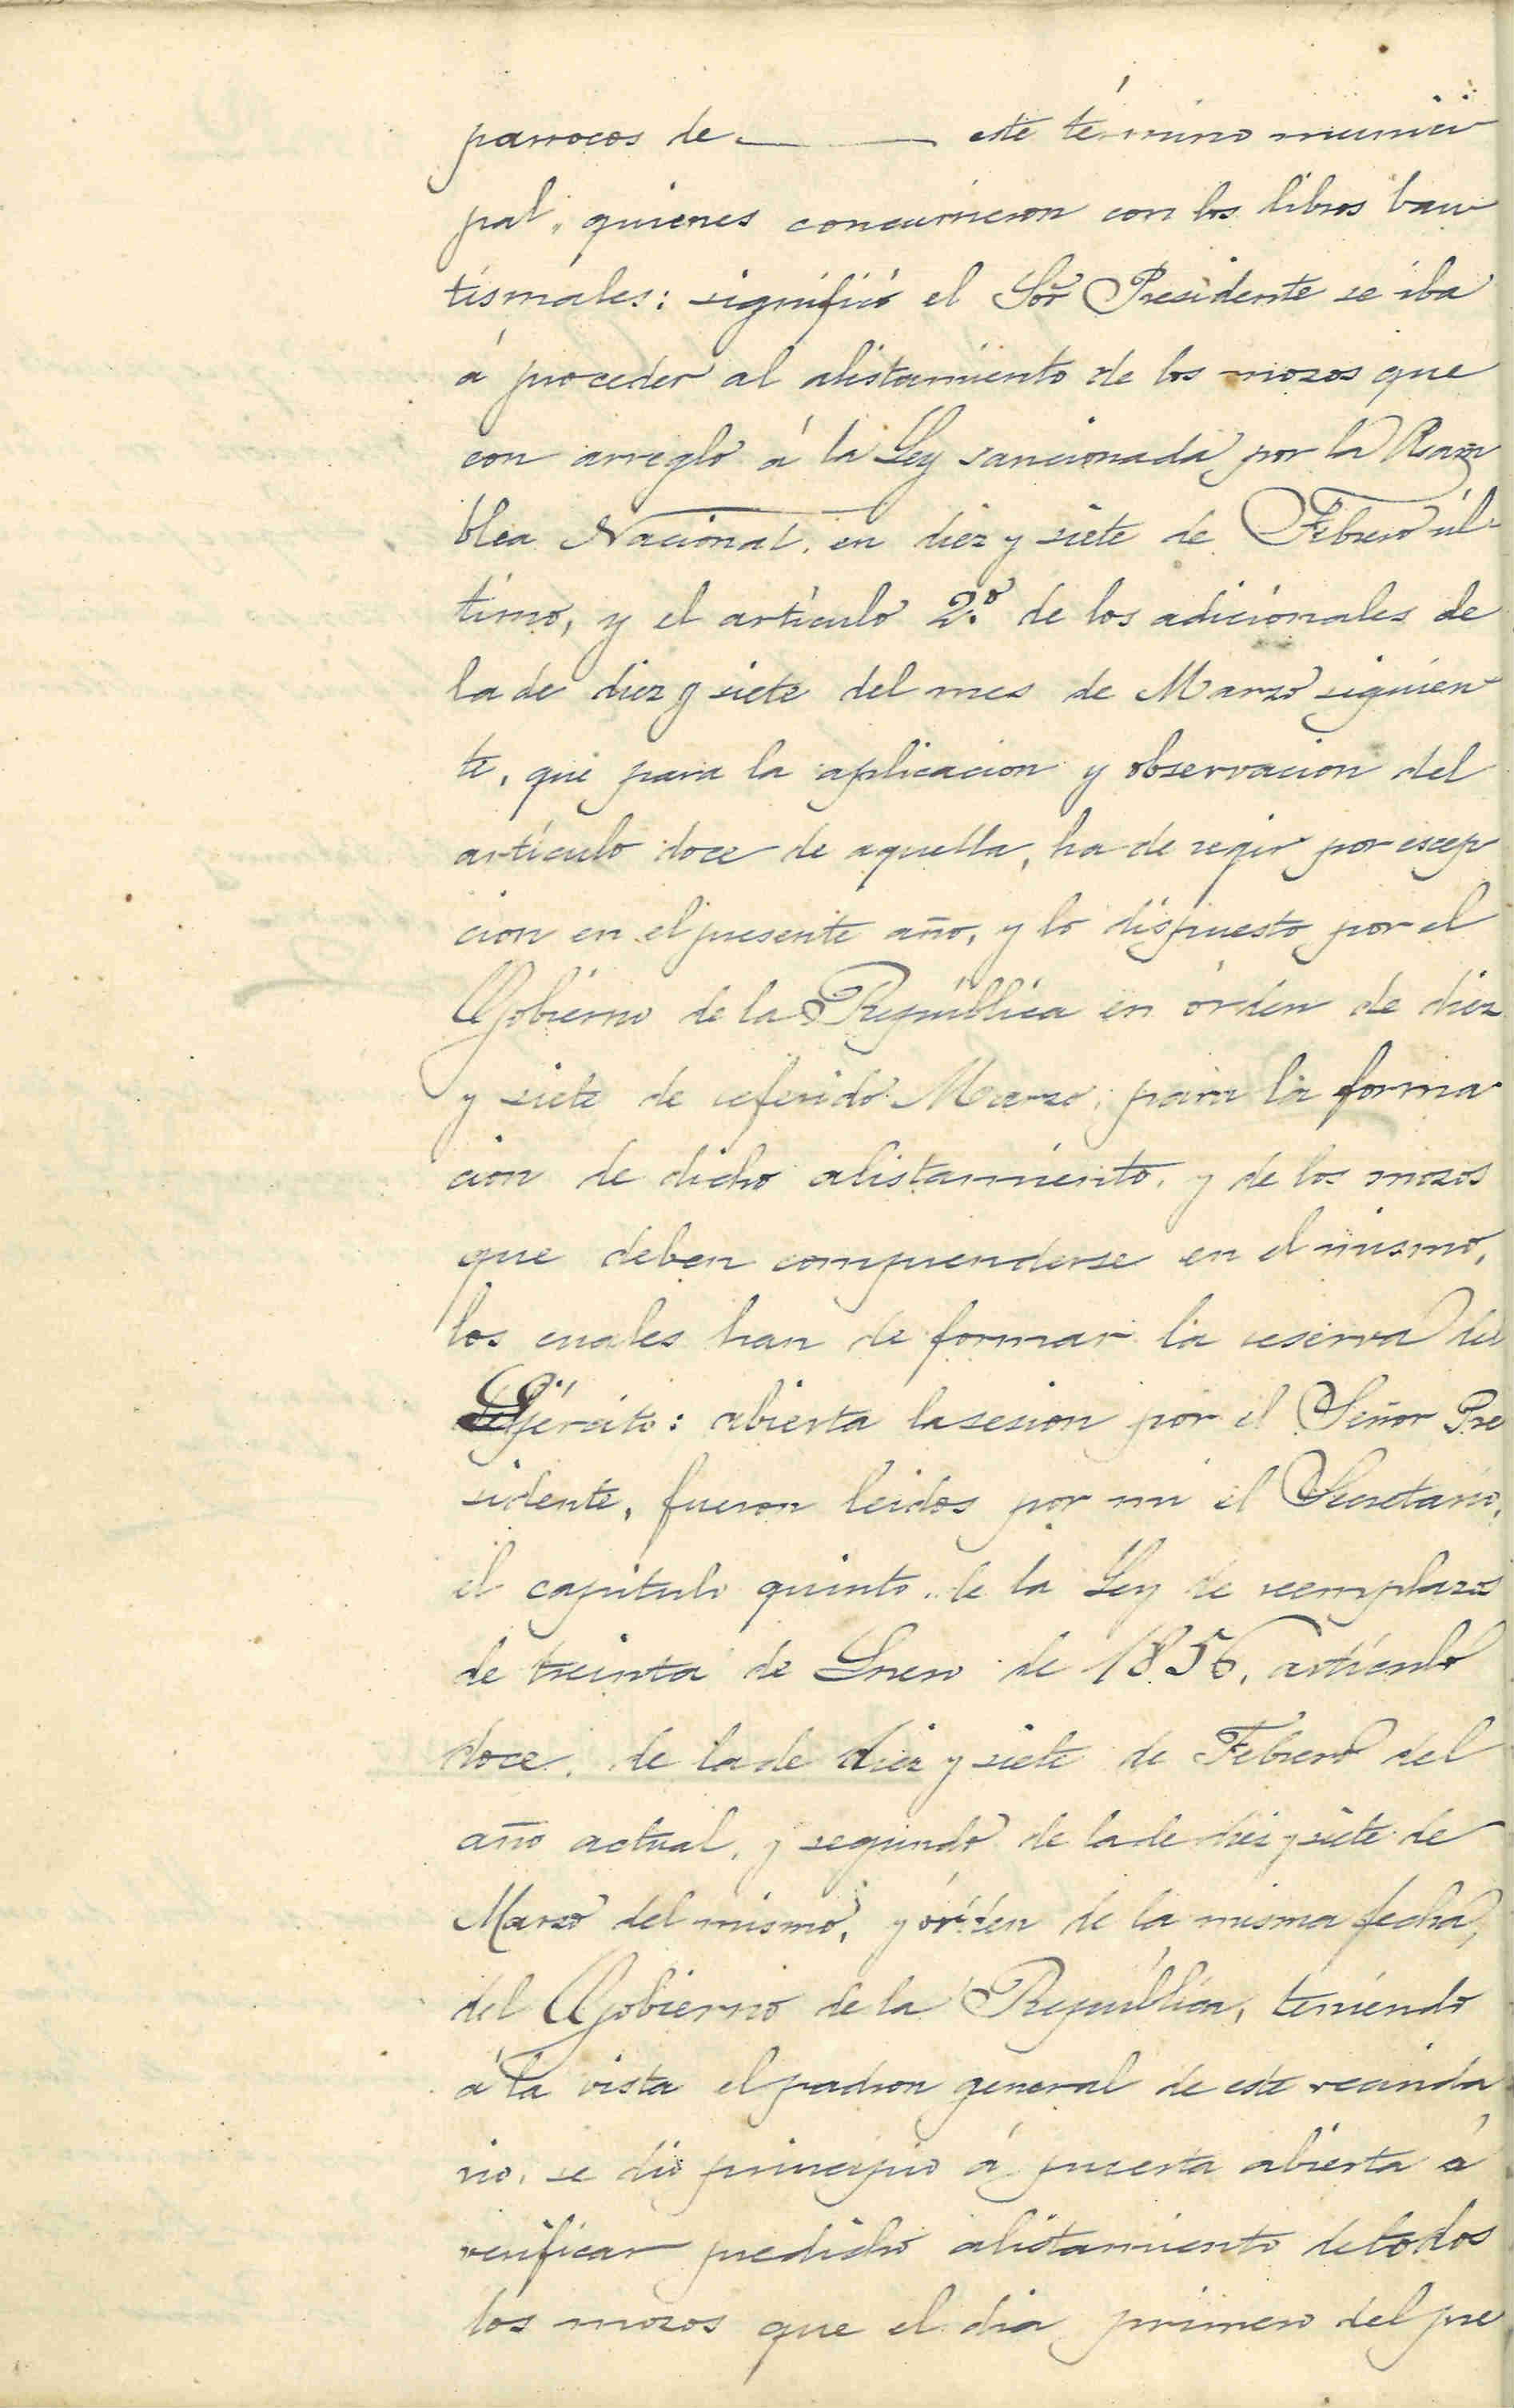 parrocos de ______ este término munici
pal, quienes concurrieron con los libros bau
tismales: significó el Sor Presidente se iba
á proceder al alistamiento de los mozos que
con arreglo á la Ley sancionada por la Asam
blea Nacional, en diez y siete de Febrero úl
timo, y el artículo 2.º de los adicionales de
la de diez y siete del mes de Marzo siguien
te, que para la aplicacion y observacion del
artículo doce de aquella, ha de regir por escep
cion en el presente año, y lo dispuesto por el
Gobierno de la República en órden de diez
y siete de referido Marzo, para la forma
cion de dicho alistamiento, y de los mozos
que deben comprenderse en el mismo,
los cuales han de formar la reserva del
Ejército: abierta la sesion por el Señor Pre
sidente, fueron leidos por mi el Secretario,
el capitulo quinto de la Ley de reemplazos
de treinta de Enero de 1856, artículo
doce, de la de diez y siete de Febrero del
año actual, y segundo de la de diez y siete de
Marzo del mismo, y órden de la misma fecha,
del Gobierno de la República, teniendo
á la vista el padron general de este vecinda
rio, se dió principio á puerta abierta á
verificar predicho alistamiento de todos
los mozos que el dia primero del pre